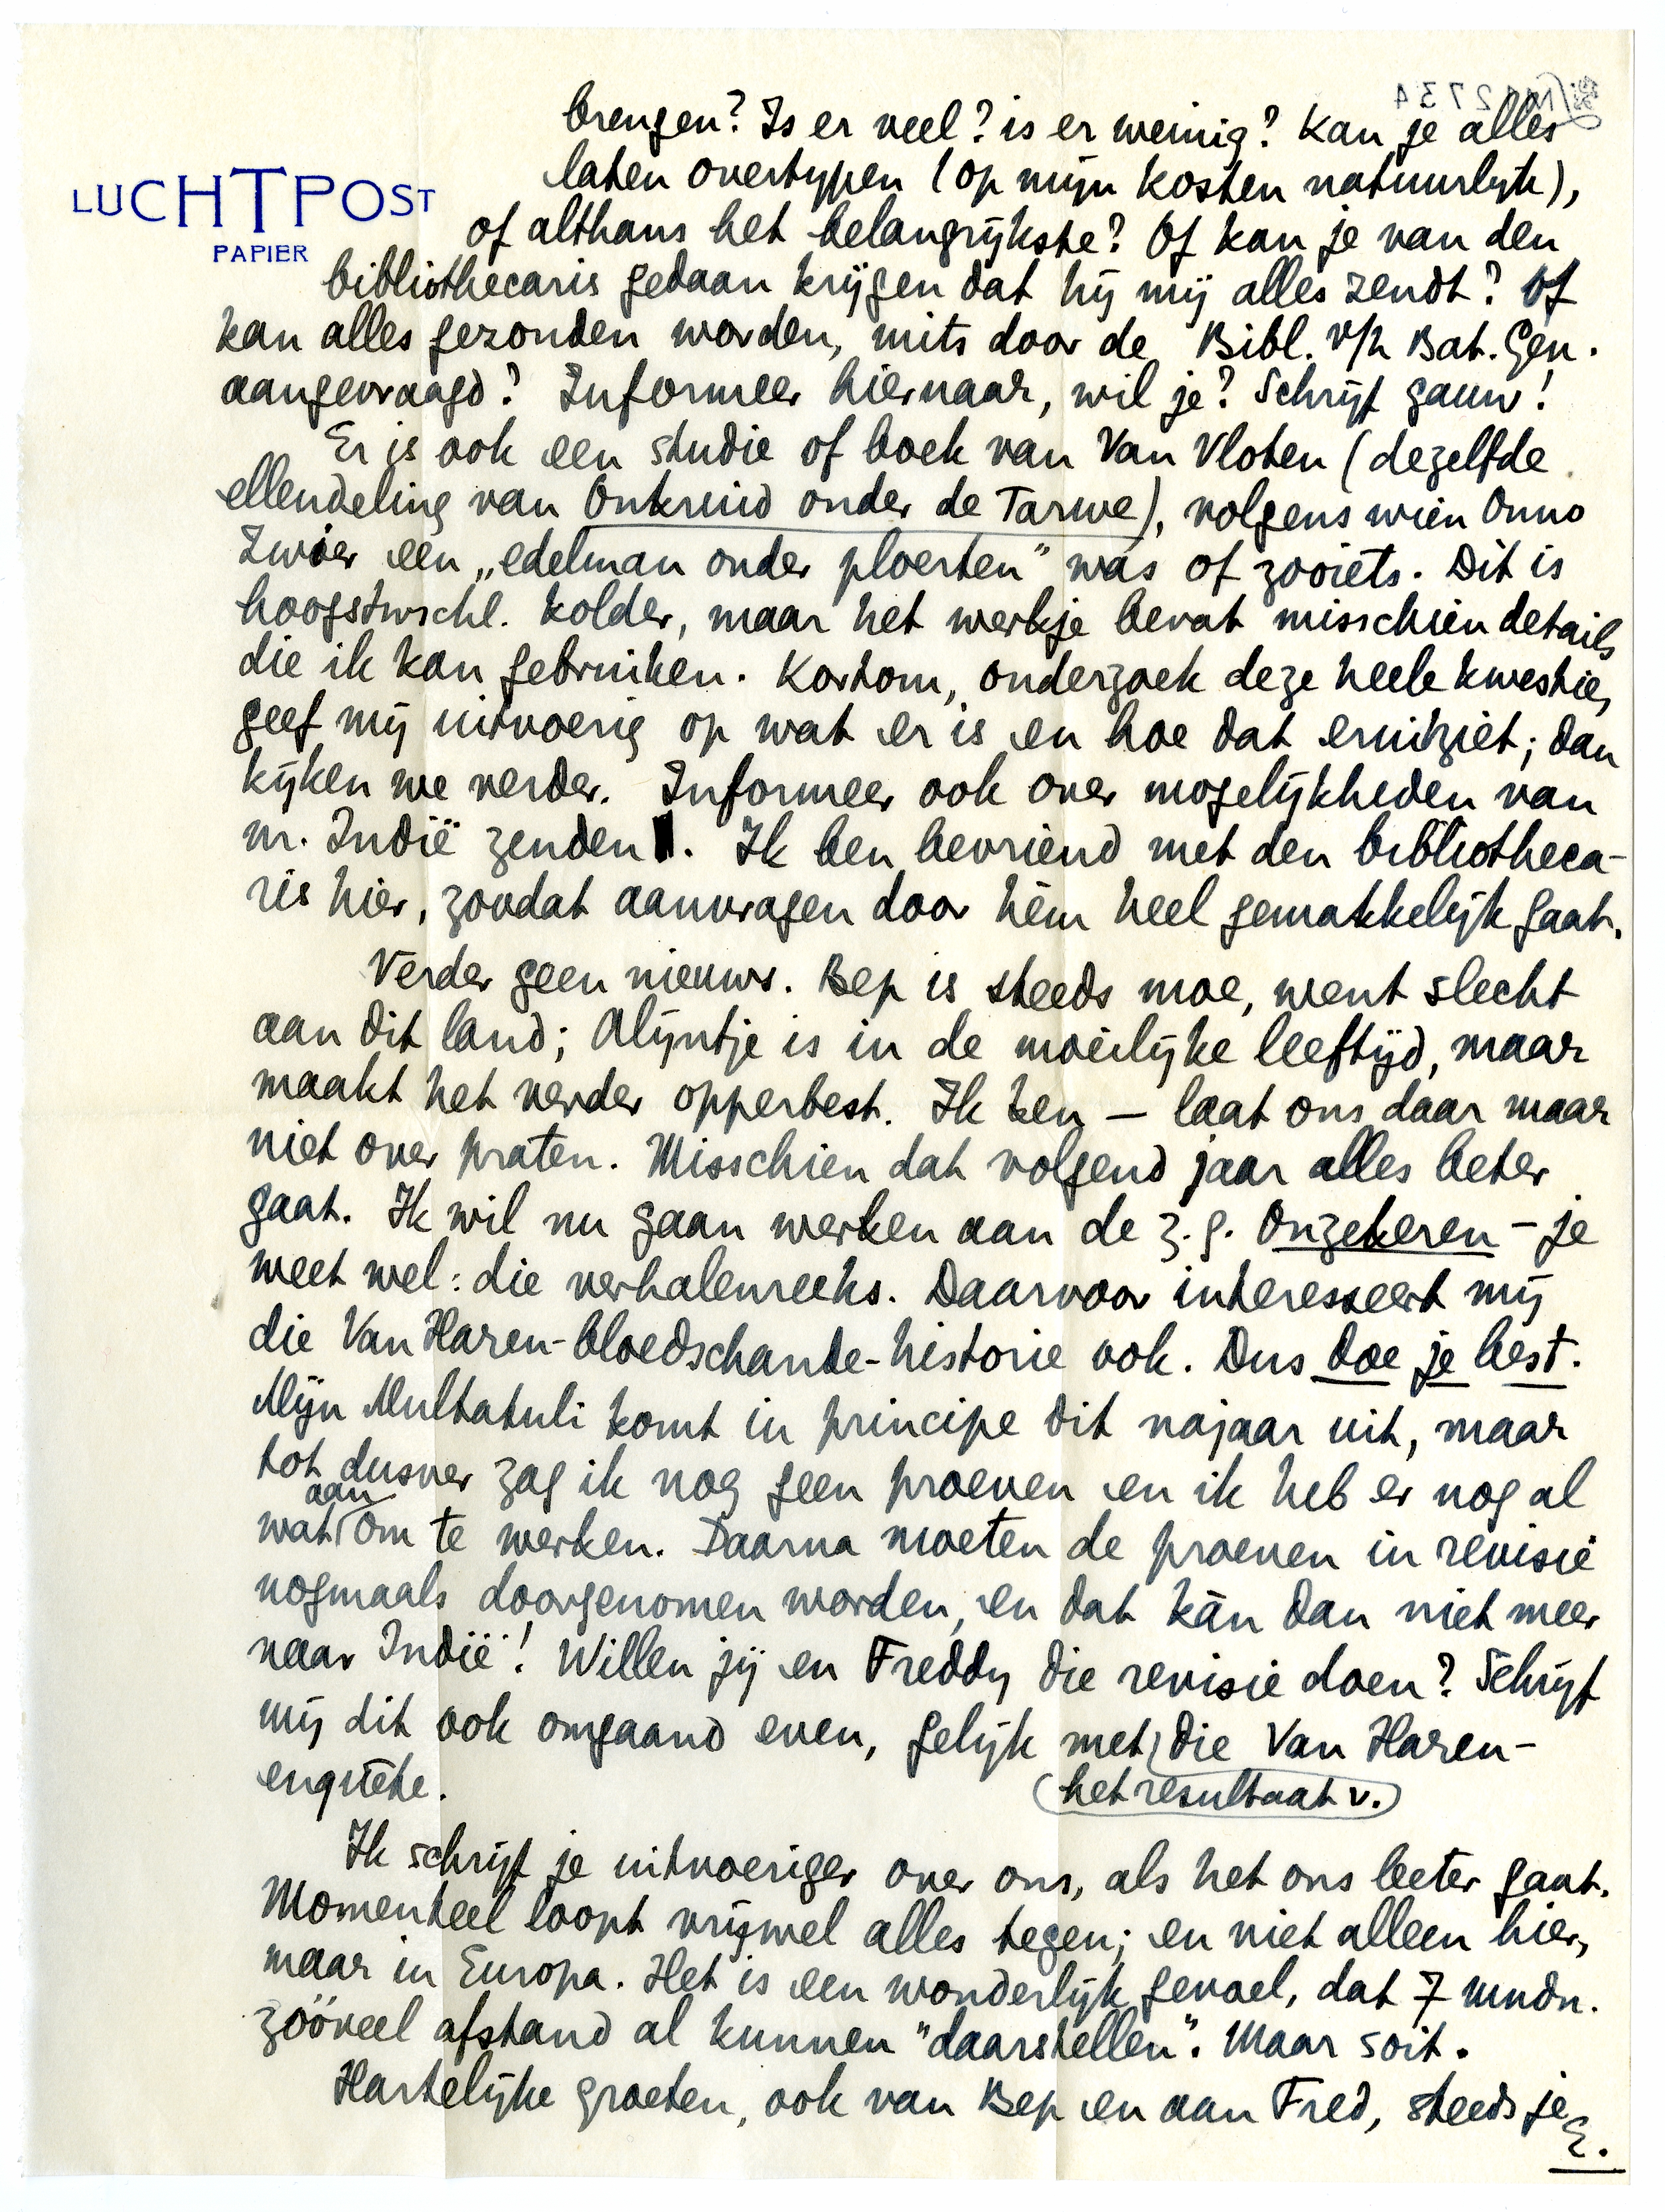 LUCHTPOST
PAPIER
brengen? Is er veel? is er weinig? Kan je alles
laten overtypen (op mijn kosten natuurlijk),
of althans het belangrijkste? Of kan je van den
bibliothecaris gedaan krijgen dat hij mij alles zendt? Of
kan alles gezonden worden, mits door de Bibl. v/h Bat. Gen.
aangevraagd? Informeer hiernaar, wil je? Schrijf gauw!
Er is ook een studie of boek van Van Vloten (dezelfde
ellendeling van Onkruid onder de Tarwe), volgens wien Onno
Zwier een „edelman onder ploerten” was of zooiets. Dit is
hoogstwschl. kolder, maar het werkje bevat misschien details
die ik kan gebruiken. Kortom, onderzoek deze heele kwestie,
geef mij uitvoerig op wat er is en hoe dat eruitziet; dan
kijken we verder. Informeer ook over mogelijkheden van
nr. Indië zenden. Ik ben bevriend met den bibliotheca-
ris hier, zoodat aanvragen door hèm heel gemakkelijk gaat.
Verder geen nieuws. Bep is steeds moe, went slecht
aan dit land; Alijntje is in de moeilijke leeftijd, maar
maakt het verder opperbest. Ik ben — laat ons daar maar
niet over praten. Misschien dat volgend jaar alles beter
gaat. Ik wil nu gaan werken aan de z.g. Onzekeren – je
weet wel: die verhalenreeks. Daarvoor interesseert mij
die Van Haren-bloedschande-historie ook. Dus doe je best.
Mijn Multatuli komt in principe dit najaar uit, maar
tot dusver zag ik nog geen proeven en ik heb er nog al
wat aan om te werken. Daarna moeten de proeven in revisie
nogmaals doorgenomen worden, en dat kàn dan niet meer
naar Indië! Willen jij en Freddy die revisie doen? Schrijf
mij dit ook omgaand even, gelijk met het resultaat v. die Van Haren-
enquête.
Ik schrijf je uitvoeriger over ons, als het ons beter gaat.
Momenteel loopt vrijwel alles tegen; en niet alleen hier,
maar in Europa. Het is een wonderlijk gevoel, dat 7 mndn.
zóóveel afstand al kunnen "daarstellen". Maar soit.
Hartelijke groeten, ook van Bep en aan Fred, steeds je
E.